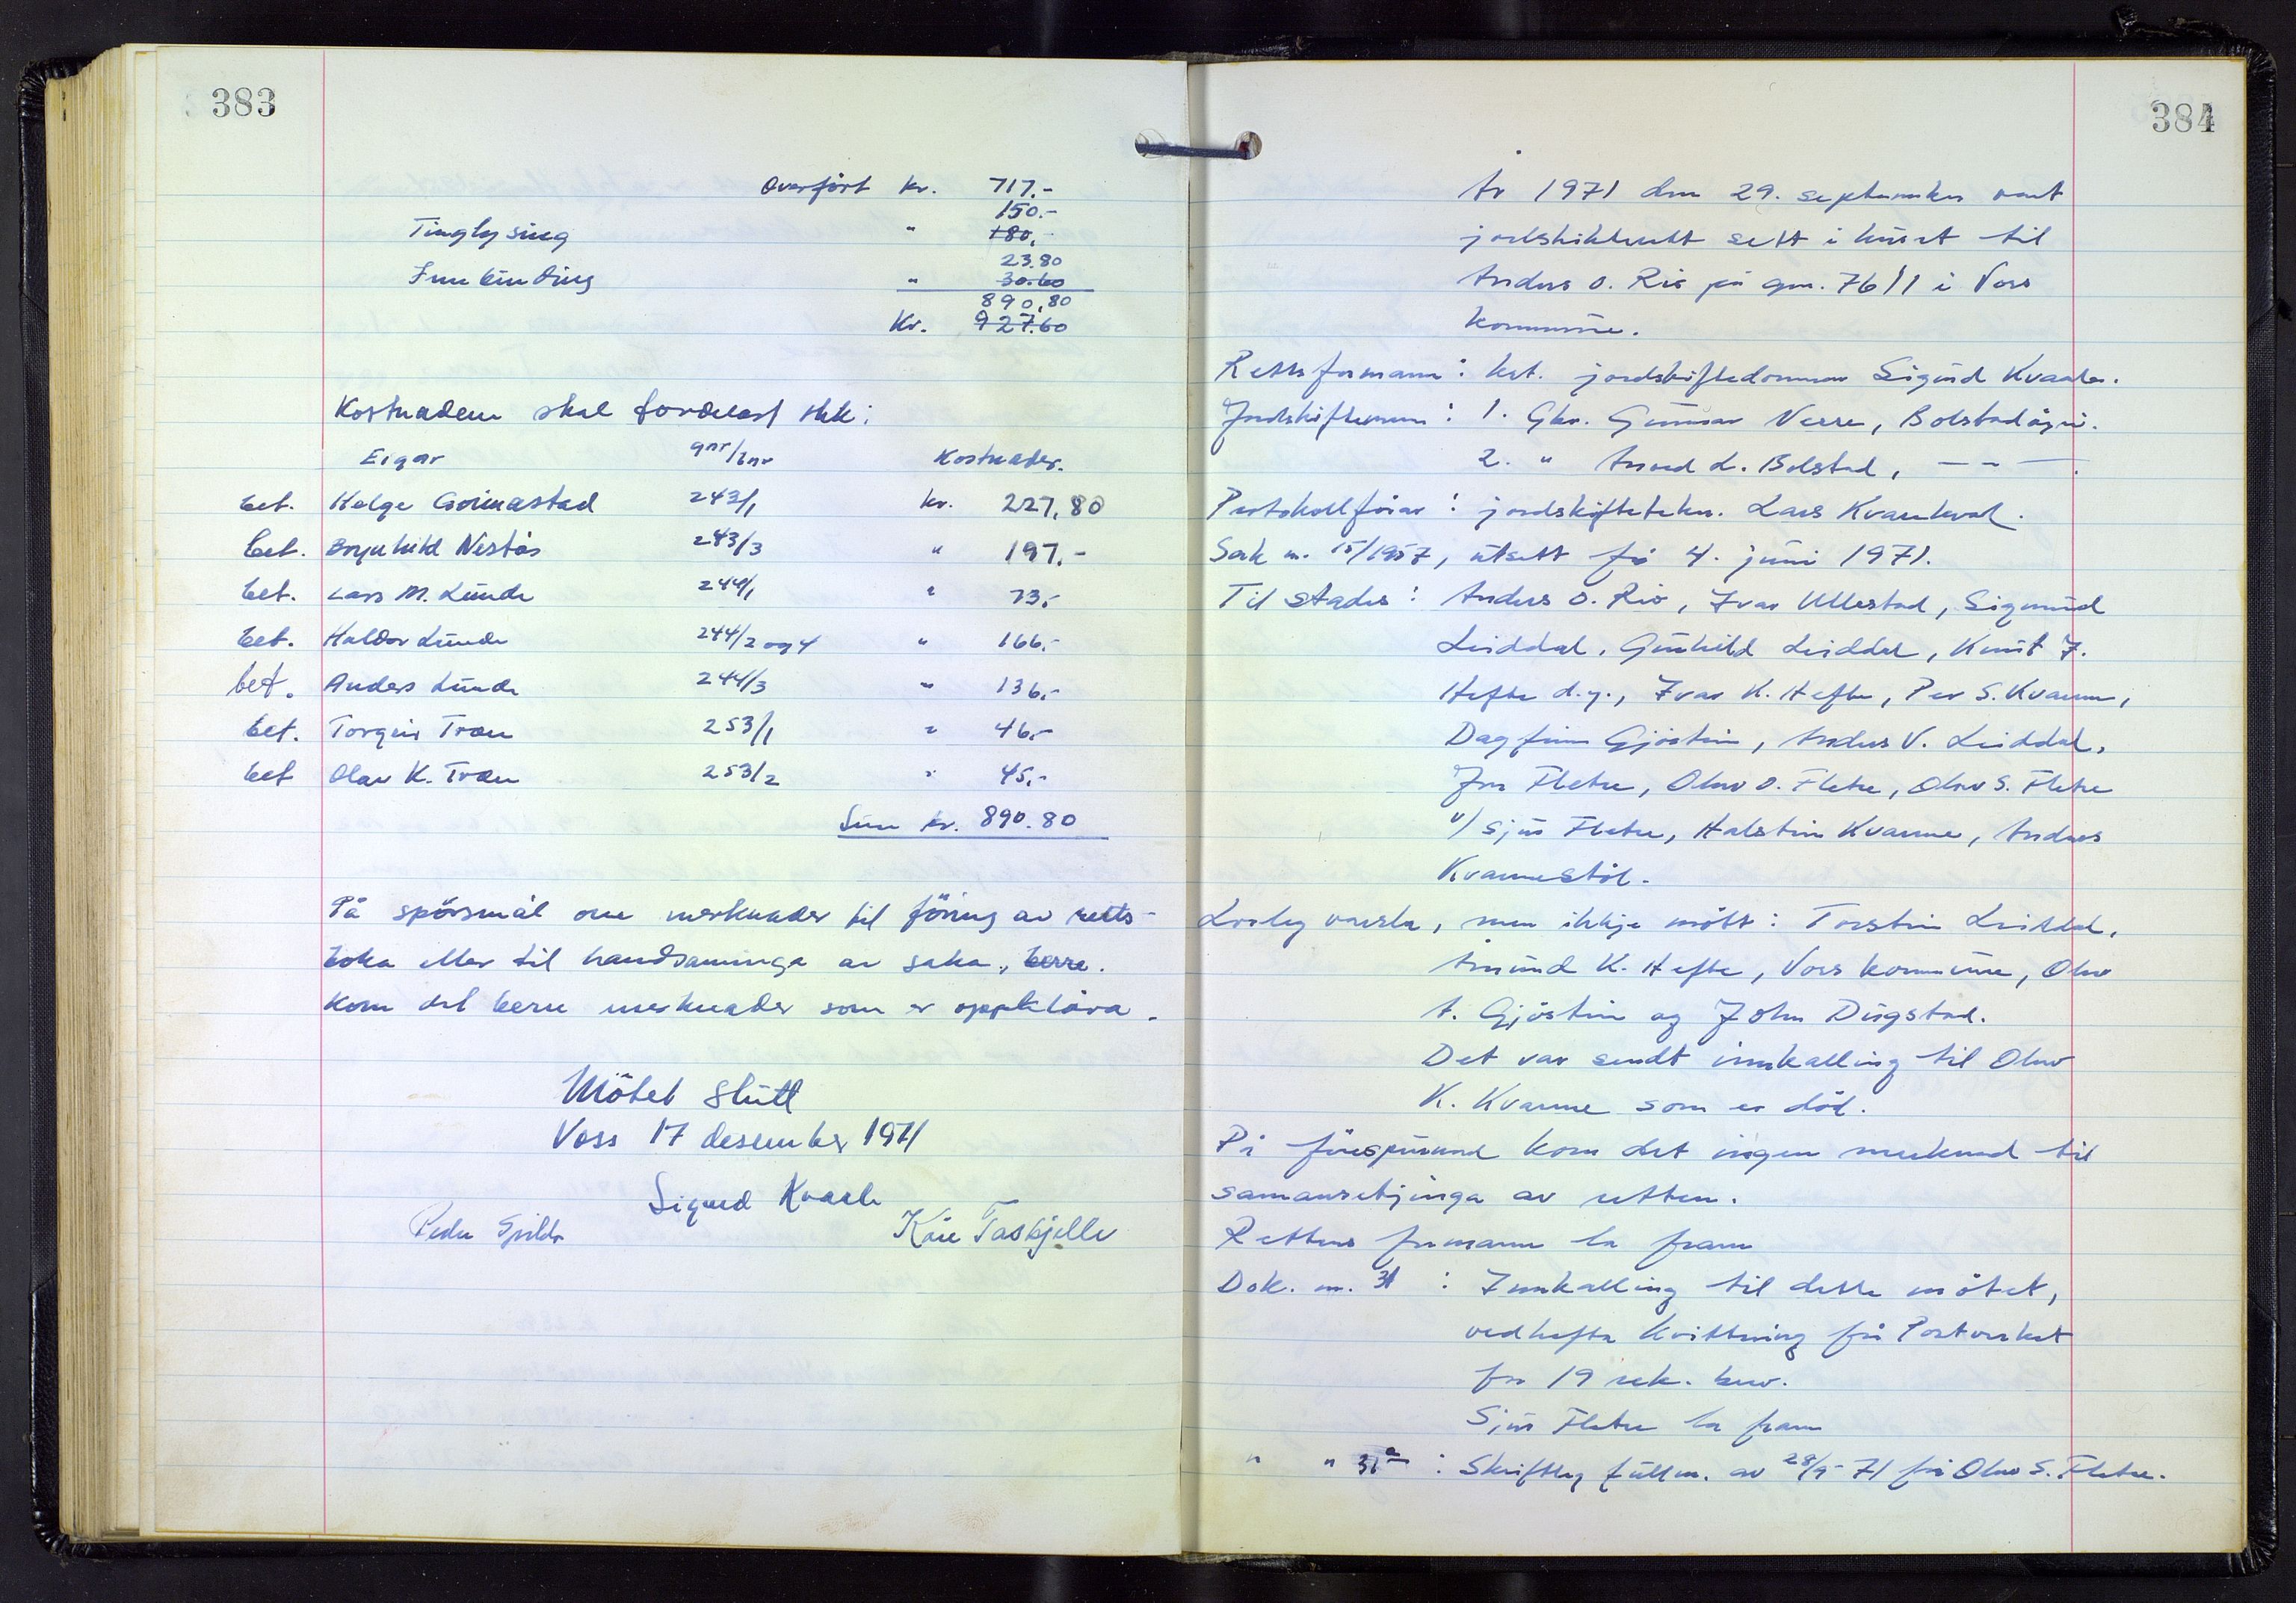 383
Overført kr. 717.-
150.-
Tinglysing " 180.-
23.80
Innbinding " 30.60
890,80
Kr. 927.60
Kostnadene skal fordelast slik:
Eigar gnr/bnr Kostnader.
bet. Helge Grimastad 243/1 kr. 227,80
bet. Brynhild Nestås 243/3 " 197.-
bet. Lars M. Lunde 244/1 " 73.-
bet. Haldor Lunde 244/2 og 4 " 166.-
bet. Anders Lunde 244/3 " 136.-
bet. Torgeir Træn 253/1 " 46.-
bet Olav K. Træn 253/2 " 45.-
Sum kr. 890.80
På spörsmål om merknader til föring av retts-
boka eller til handsaminga av saka, berre.
kom det berre merknader som er oppklåra.
Mötet slutt
Voss 17 desember 1971
Sigurd Kvaale
Peder Spilde Kåre Taskjelle
384
År 1971 den 29. september vart
jordskifterett sett i huset til
Anders O. Rio på gnr. 76/1 i Voss
kommune.
Rettsformann: kst. jordskiftedommar Sigurd Kvaale.
Jordskiftemenn: 1. Gbr. Gunnar Nesse, Bolstadøyri.
2. " Arned L. Bolstad, — " —.
Protokollförar: jordskiftetekn. Lars Kvarekval.
Sak nr. 15/1957, utsett frå 4. juni 1971.
Til stades: Anders O. Rio, Ivar Ullestad, Sigmund
Leiddal, Gunhild Leiddal, Knut I.
Hefte d.y., Ivar K. Hefte, Per S. Kvarme,
Dagfinn Gjöstein, Anders V. Leiddal,
Jon Fletre, Olav O. Fletre, Olav S. Fletre
v/ Sjur Fletre, Halstein Kvarme, Anders
Kvarmestöl.
Lovleg varsla, men ikkje mött: Torstein Leiddal,
Åmund K. Hefte, Voss kommune, Olav
A. Gjöstein og John Dugstad.
Det var sendt innkalling til Olav
K. Kvarme som er död.
På förespurnad kom det ingen merknad til
samansetjinga av retten.
Rettens formann la fram
Dok. nr. 31 : Innkalling til dette mötet,
vedhefta kvittering frå Postverket
for 19 rek. brev.
Sjur Fletre la fram
" " 31a : Skriftleg fullm. av 28/9-71 frå Olav S. Fletre.